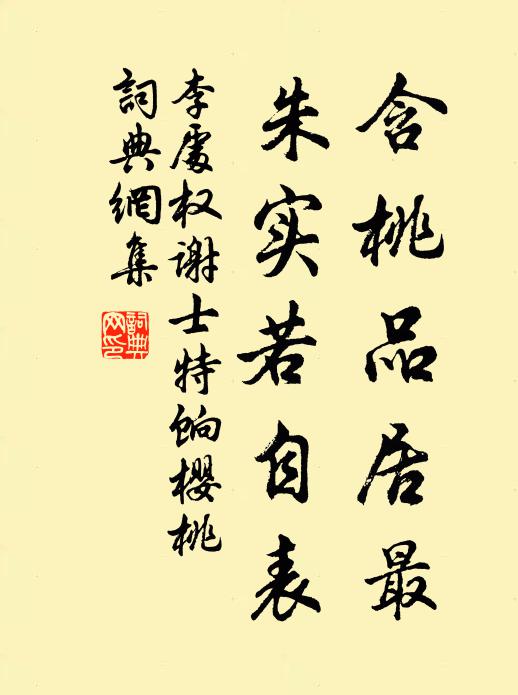 含桃品居最
朱实若自表
李處权谢士特饷樱桃
詞典網集
詞典网印